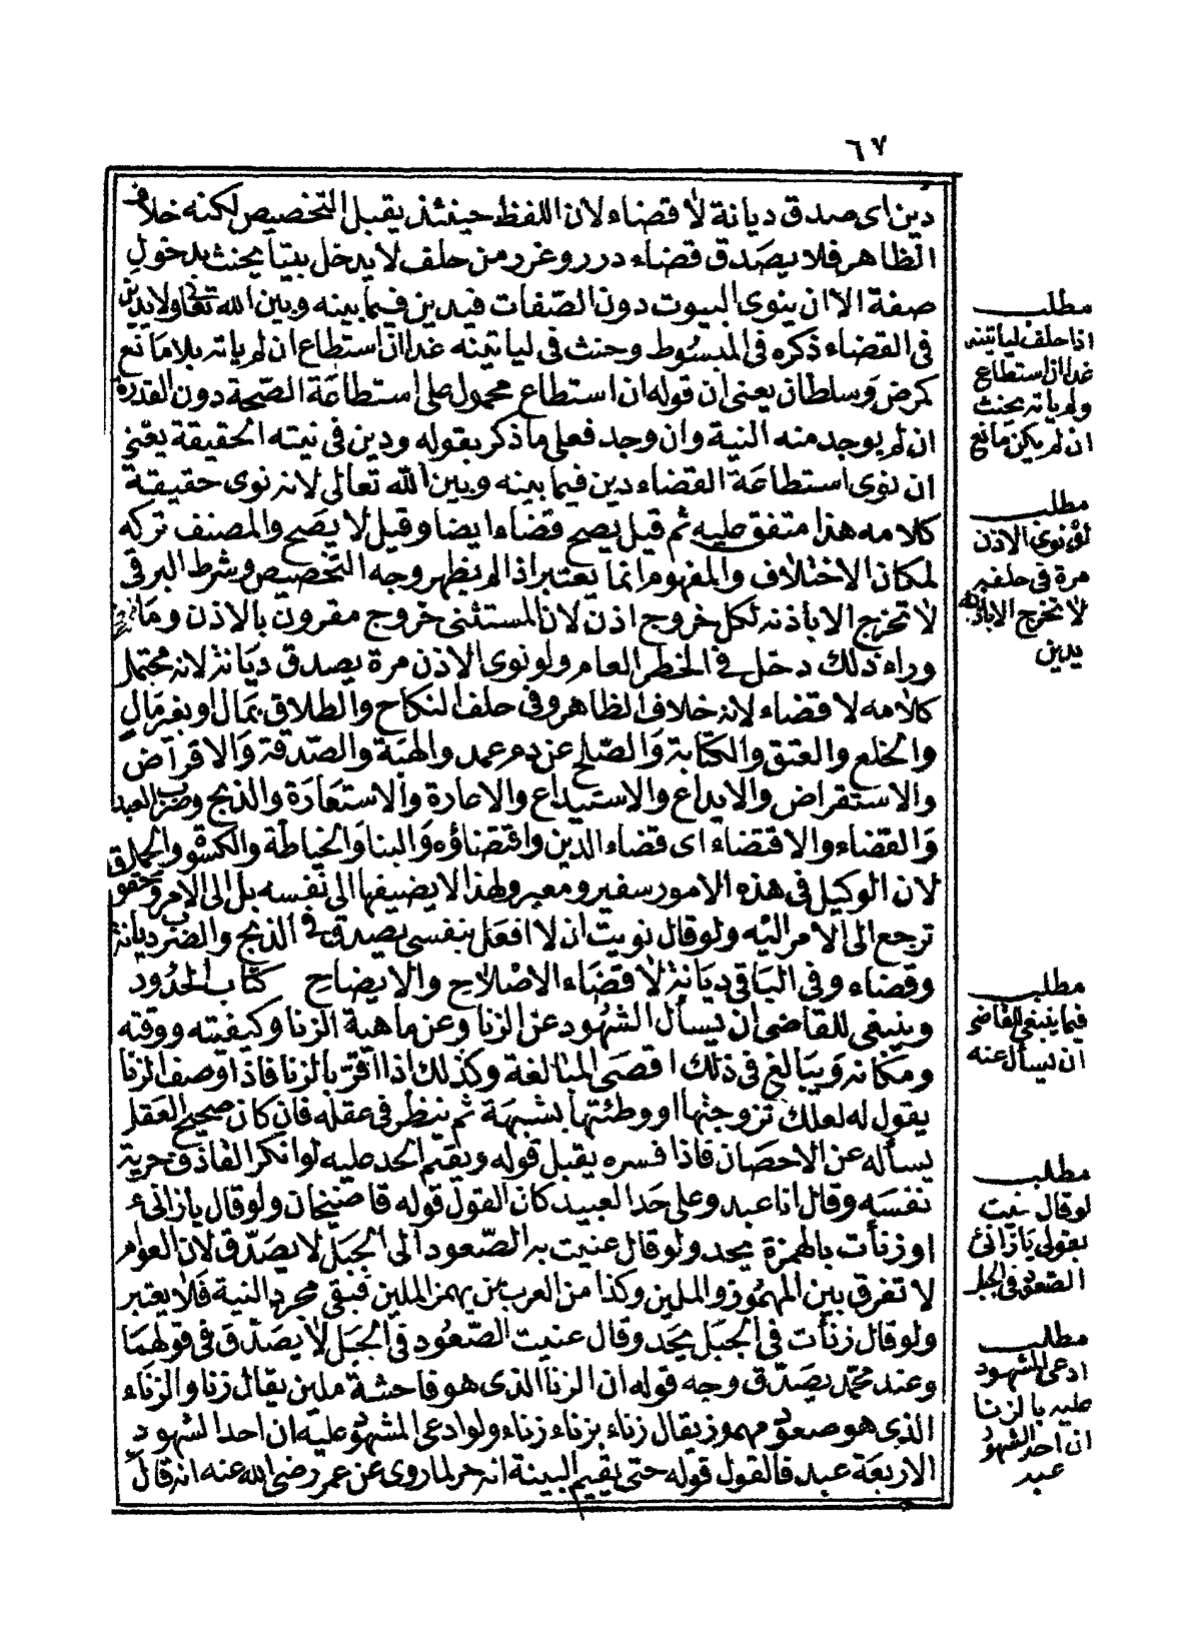 ٦٧
دين اى صدق ديانة لا قضاء لان اللفظ حينئذ يقبل التخصيص لكنه خلاف
الظاهر فلا يصدق قضاء درر وغرر من حلف لا يدخل بيتا يحنث بدخول
صفة الا ان ينوى البيوت دون الصفات فيدين فيما بينه وبين الله تعالى ولا يدين
فى القضاء ذكره فى المبسوط وحنث فى ليأتينه غدا ان استطاع ان لم ياته بلا مانع
كمرض وسلطان يعنى ان قوله ان استطاع محمول على استطاعة الصحة دون القدرة
ان لم يوجد منه النية وان وجد فعلى ما ذكر بقوله ودين فى نيته الحقيقة يعنى
ان نوى استطاعة القضاء دين فيما بينه وبين الله تعالى لانه نوى حقيقة
كلامه هذا متفق عليه ثم قيل يصح قضاء ايضا وقيل لا يصح والمصنف تركه
لمكان الاختلاف والمفهوم انما يعتبر اذا لم يظهر وجه التخصيص وشرط البر فى
لا تخرج الا باذنه لكل خروج اذن لان المستثنى خروج مقرون بالاذن وما
وراء ذلك دخل فى الحظر العام ولو نوى الاذن مرة يصدق ديانة لانه محتمل
كلامه لا قضاء لانه خلاف الظاهر وفى حلف النكاح والطلاق بمال او بغير مال
والخلع والعتق والكتابة والصلح عن دم عمد والهبة والصدقة والاقراض
والاستقراض والايداع والاستيداع والاعارة والاستعارة والذبح وضرب العبد
والقضاء والاقتضاء اى قضاء الدين واقتضاؤه والبنا والخياطة والكسوة والحمل
لان الوكيل فى هذه الامور سفير ومعبر ولهذا لا يضيفها الى نفسه بل الى الامر وحقوق
ترجع الى الامر اليه ولو قال نويت ان لا افعل بنفسى يصدق فى الذبح والضرب ديانة
وقضاء وفى الباقى ديانة لا قضاء الاصلاح والايضاح كتاب الحدود
وينبغى للقاضى ان يسأل الشهود عن الزنا وعن ماهية الزنا وكيفيته ووقته
ومكانه ويبالغ فى ذلك اقصى المبالغة وكذلك اذا اقر بالزنا فاذا وصف الزنا
يقول له لعلك تزوجتها او وطئتها بشبهة ثم ينظر فى عقله فان كان صحيح العقل
يسأله عن الاحصان فاذا فسره يقبل قوله ويقيم الحد عليه لو انكر القاذف حرية
نفسه وقال انا عبد وعلى حد العبيد كان القول قوله قاضيخان ولو قال يا زانىء
او زنأت بالهمزة يحد ولو قال عنيت به الصعود الى الجبل لا يصدق لان العوام
لا تفرق بين المهموز والملين وكذا من العرب من يهمز الملين فبقى مجرد النية فلا يعتبر
ولو قال زنأت فى الجبل يحد وقال عنيت الصعود فى الجبل لا يصدق فى قولهما
وعند محمد يصدق وجه قوله ان الزنا الذى هو فاحشة ملين يقال زنا والزناء
الذى هو صعود مهموز يقال زناء يزناء زناء ولو ادعى المشهود عليه ان احد الشهود
الاربعة عبد فالقول قوله حتى يقيم البينة انه حر لما روى عن عمر رضى الله عنه انه قال
مطلب
اذا حلف ليأتينه
غدا ان استطاع
ولم ياته يحنث
ان لم يكن مانع
مطلب
لو نوى الاذن
مرة فى حلفه
لا تخرج الا باذنه
يدين
مطلب
فيما ينبغى للقاضى
ان يسأل عنه
مطلب
لو قال عنيت
بقولى يا زانئ
الصعود فى الجبل
مطلب
ادعى المشهود
عليه بالزنا
ان احد الشهود
عبد